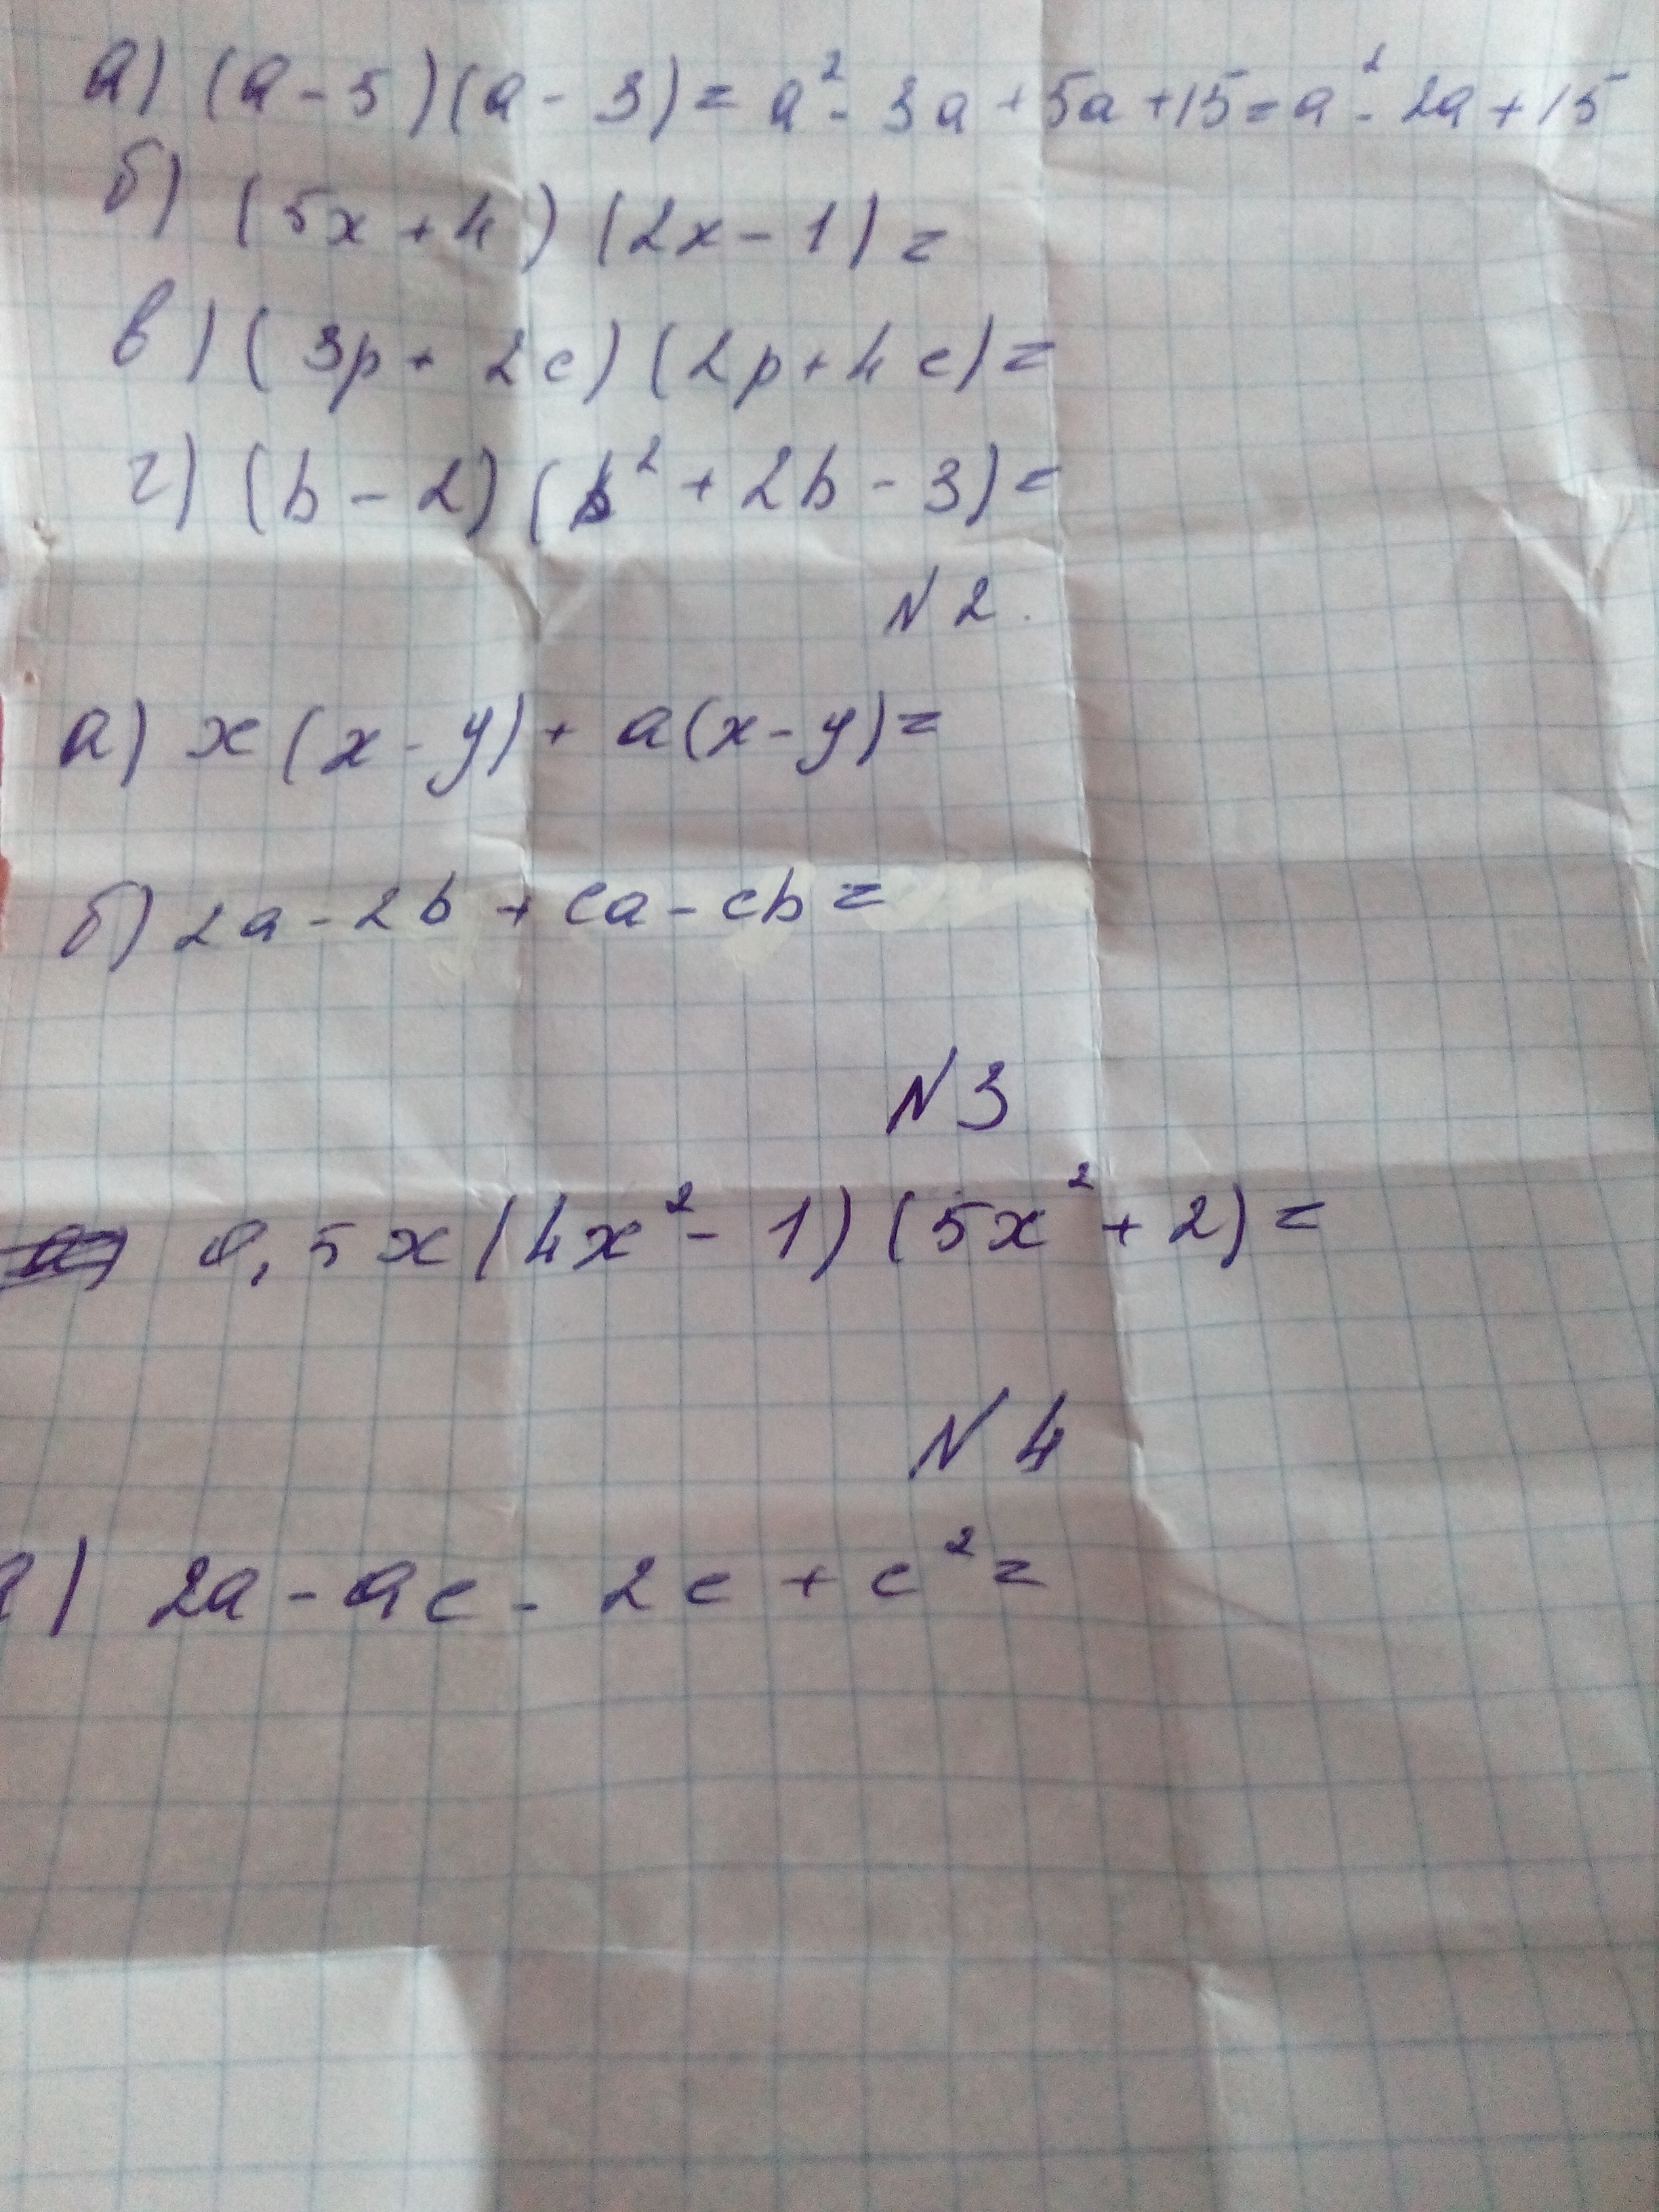 а) (a - 5)(a - 3) = a² - 3a + 5a + 15 = a² - 2a + 15
б) (5x + 4) (2x - 1) =
в) (3p + 2c) (2p + 4c) =
г) (b - 2) (b² + 2b - 3) =
N 2.
а) x (x - y) + a(x - y) =
б) 2a - 2b + ca - cb =
N 3
0,5x (4x² - 1) (5x² + 2) =
N 4
а) 2a - ac - 2c + c² =